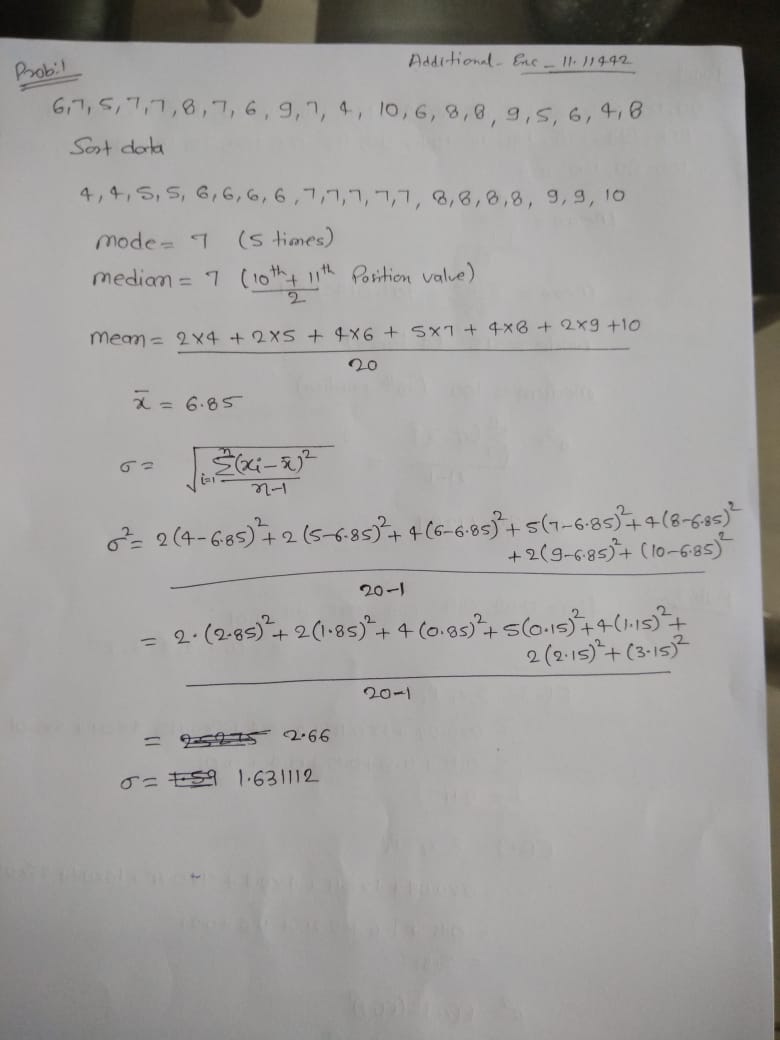 Prob:1
Additional - Exe - 11.11442
6,7,5,7,7,8,7,6,9,7,4,10,6,8,8,9,5,6,4,8
Sort data
4,4,5,5,6,6,6,6,7,7,7,7,7,8,8,8,8,9,9,10
mode = 7 (5 times)
median = 7 (10th + 11th / 2 Position value)
mean = 2×4 + 2×5 + 4×6 + 5×7 + 4×8 + 2×9 +10
20
x̄ = 6.85
σ = √ n Σ i=1 (xi – x̄)² / n-1
σ² = 2(4-6.85)² + 2(5-6.85)² + 4(6-6.85)² + 5(7-6.85)² + 4(8-6.85)²
+ 2(9-6.85)² + (10-6.85)²
20-1
= 2·(2.85)² + 2(1.85)² + 4(0.85)² + 5(0.15)² + 4(1.15)² +
2(2.15)² + (3.15)²
20-1
= 2.5275 2.66
σ = 1.59 1.631112